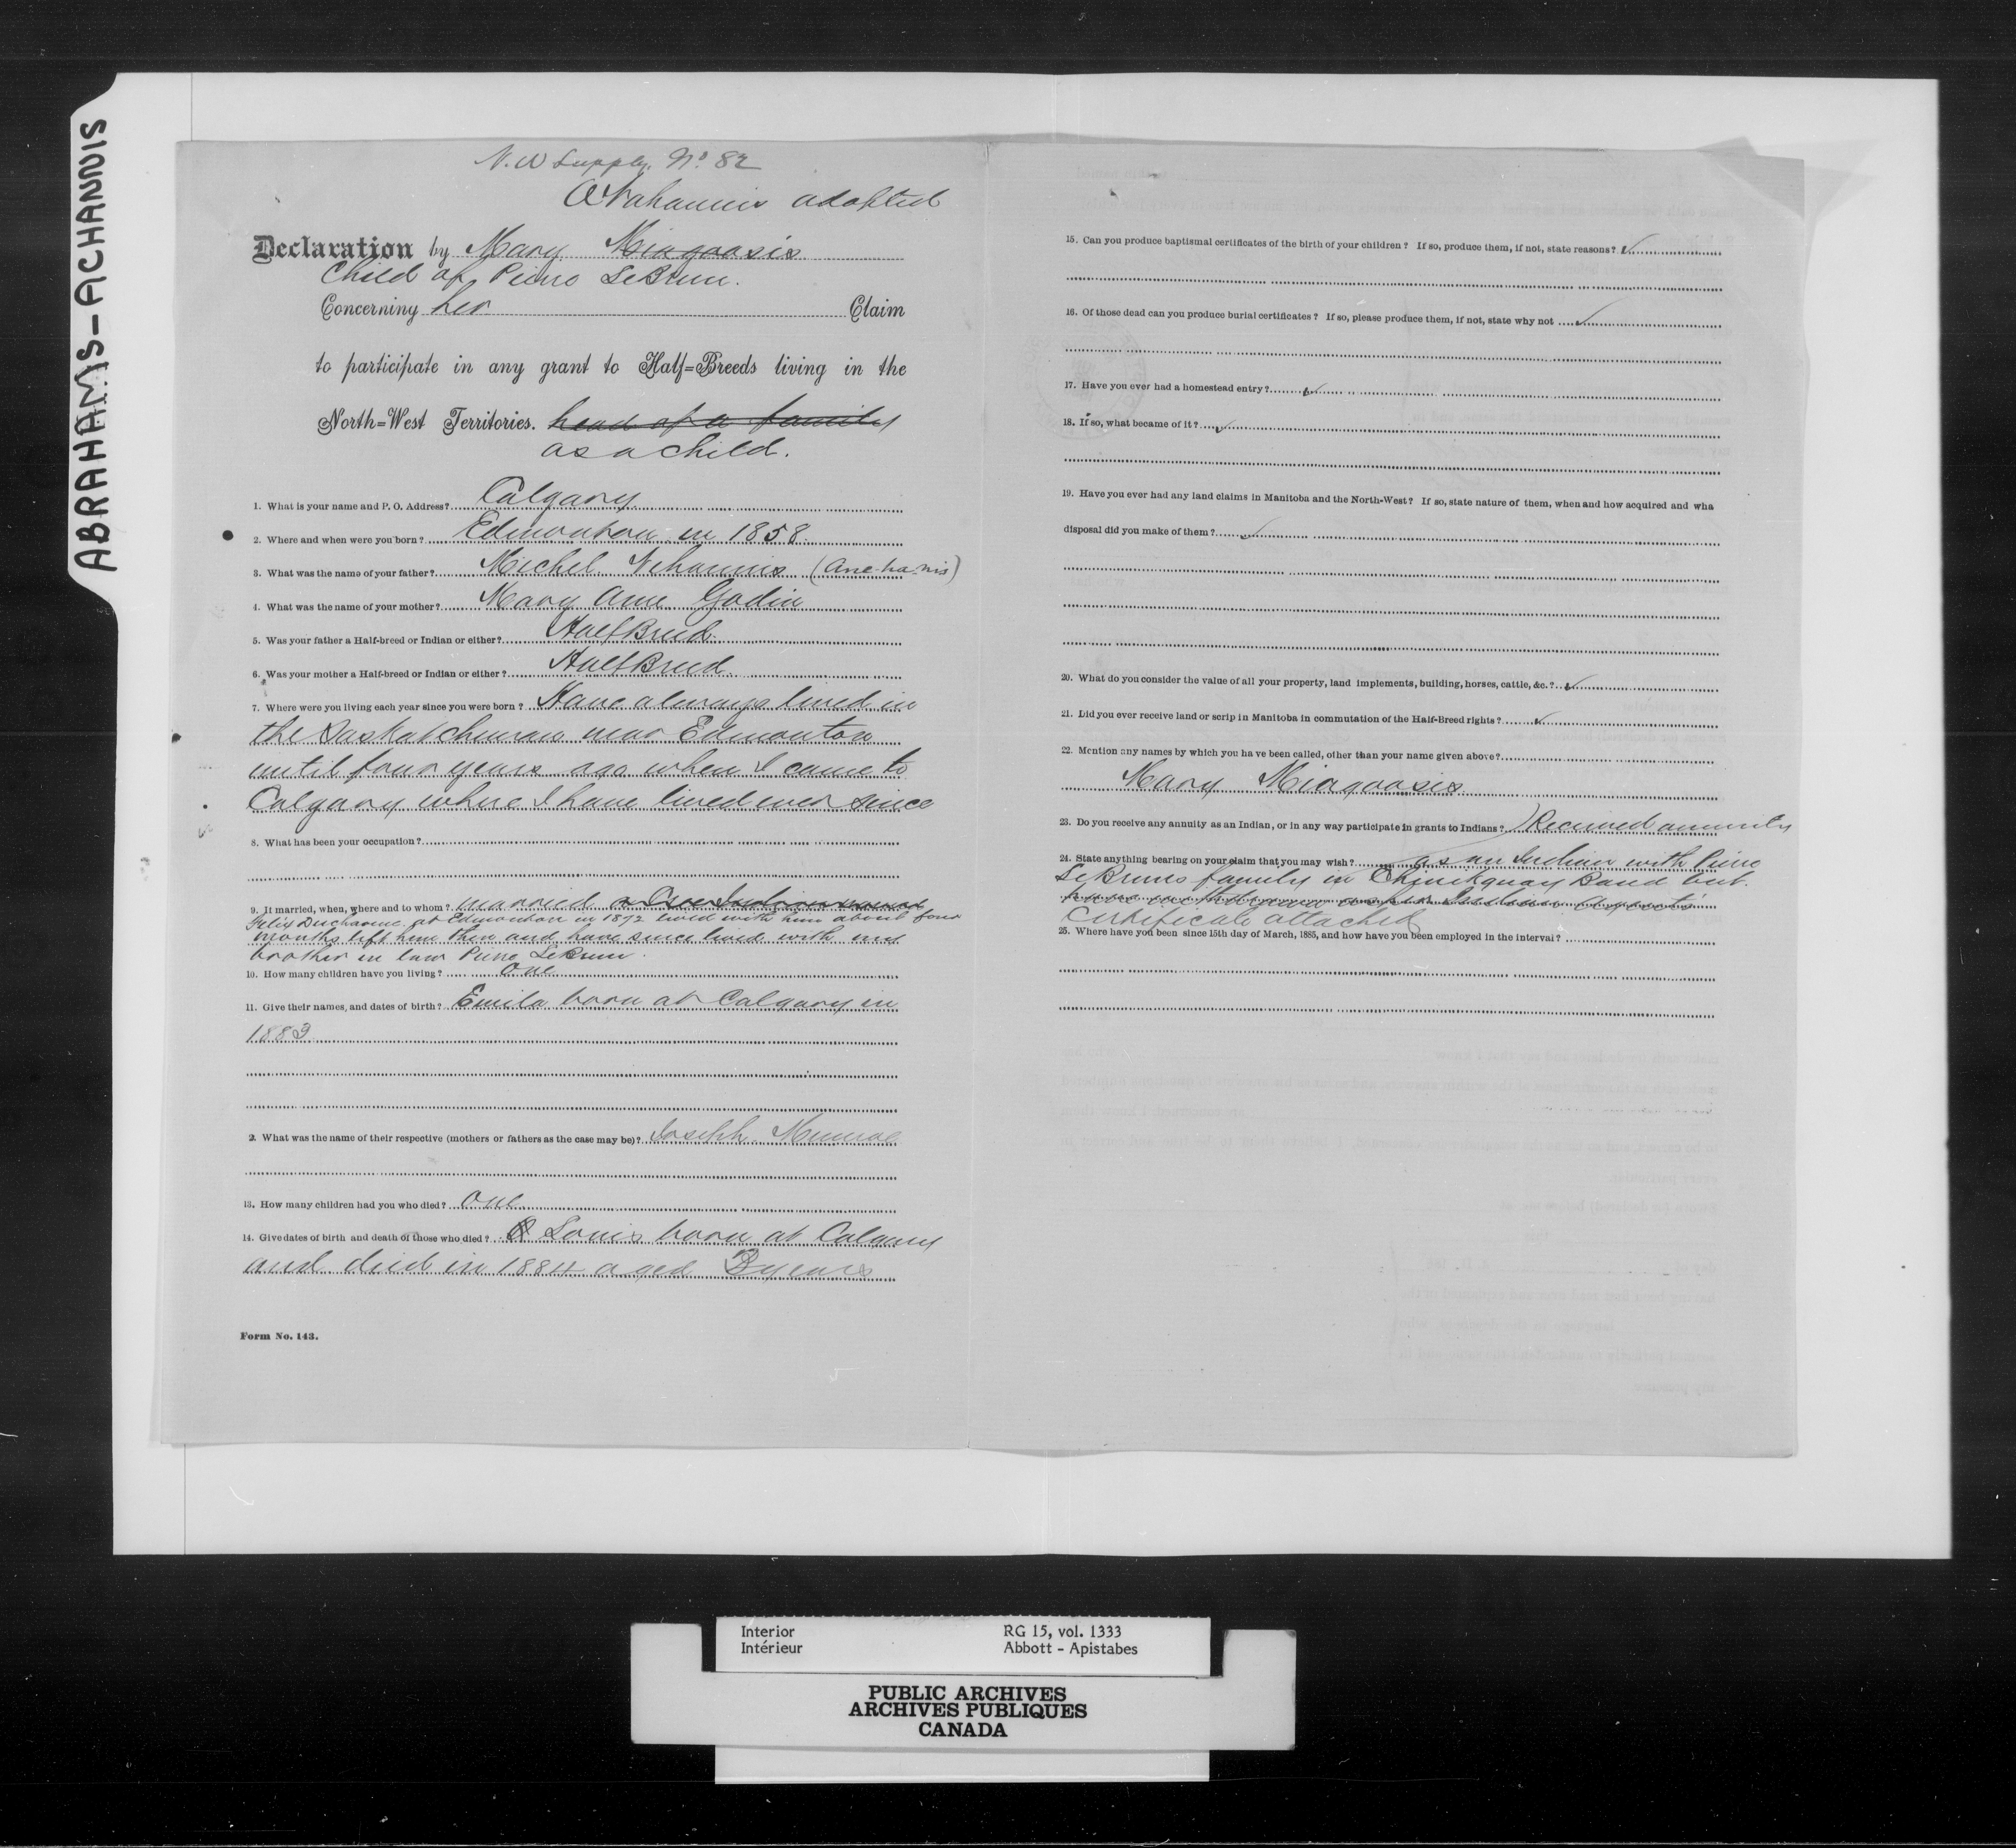 ABRAHAMS-ACHANNIS
N. W Supply. No 82
adopted
Declaration by Mary
Child of Pierre LeBrun.
Concerning her Claim
to participate in any grant to Half=Breeds living in the
North=West Territories. head of a family
as a child.
1. What is your name and P. O. Address? Calgary
2. Where and when were you born? Edmonton in 1858
3. What was the name of your father? Michel Nihannis (Ane-ha-nis)
4. What was the name of your mother? Mary Ann Godin
5. Was your father a Half-breed or Indian or either? HalfBreed
6. Was your mother a Half-breed or Indian or either? HalfBreed
7. Where were you living each year since you were born? Have always lived in
the Saskatchewan near Edmonton
until four years ago when I came to
Calgary where I have lived ever since
8. What has been your occupation?
9. If married, when, where and to whom? married
Felix Ducharme at Edmonton in 1872 lived with him about four
months left him then and have since lived with my
brother in law Pierre LeBrun.
10. How many children have you living? one
11. Give their names, and dates of birth? Emila born at Calgary in
1883
2. What was the name of their respective (mothers or fathers as the case may be)? Joseph Munroe
13. How many children had you who died? one
14. Give dates of birth and death of those who died? Louis born at Calgary
and died in 1884 aged 3 years
Form No. 143.
15. Can you produce baptismal certificates of the birth of your children? If so, produce them, if not, state reasons?
16. Of those dead can you produce burial certificates? If so, please produce them, if not, state why not
17. Have you ever had a homestead entry?
18. If so, what became of it?
19. Have you ever had any land claims in Manitoba and the North-West? If so, state nature of them, when and how acquired and wha
disposal did you make of them?
20. What do you consider the value of all your property, land implements, building, horses, cattle, &c.?
21. Did you ever receive land or scrip in Manitoba in commutation of the Half-Breed rights?
22. Mention any names by which you have been called, other than your name given above?
Mary
23. Do you receive any annuity as an Indian, or in any way participate in grants to Indians? Received annuity
24. State anything bearing on your claim that you may wish? as an Indian with Pierre
LeBruns family in Chinikquay Band but
have withdrawn as an Indian Agents
Certificate attached
25. Where have you been since 15th day of March, 1885, and how have you been employed in the interval?
Interior RG 15, vol. 1333
Intérieur Abbott - Apistabes
PUBLIC ARCHIVES
ARCHIVES PUBLIQUES
CANADA